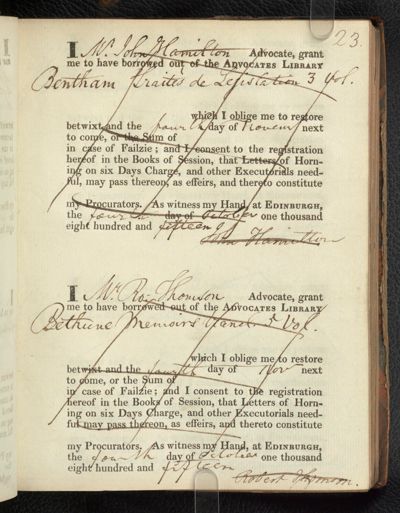 23.
I Mr. John Hamilton Advocate, grant
me to have borrowed out of the ADVOCATES LIBRARY
Bentham Traités de Legislation 3 Vol.
which I oblige me to restore
betwixt and the fourth day of Novemr next
to come, or the Sum of
in case of Failzie; and I consent to the registration
hereof in the Books of Session, that Letters of Horn-
ing on six Days Charge, and other Executorials need-
ful, may pass thereon, as effeirs, and thereto constitute
my Procurators. As witness my Hand, at EDINBURGH,
the fourth day of October one thousand
eight hundred and fifteen
John Hamilton
I Mr. Rot Thomson Advocate, grant
me to have borrowed out of the ADVOCATES LIBRARY
Bethune Memoirs Vol.
which I oblige me to restore
betwixt and the fourth day of Nov next
to come, or the Sum of
in case of Failzie; and I consent to the registration
hereof in the Books of Session, that Letters of Horn-
ing on six Days Charge, and other Executorials need-
ful may pass thereon, as effeirs, and thereto constitute
my Procurators. As witness my Hand, at EDINBURGH,
the fourth day of October one thousand
eight hundred and fifteen
Robert Thomson.